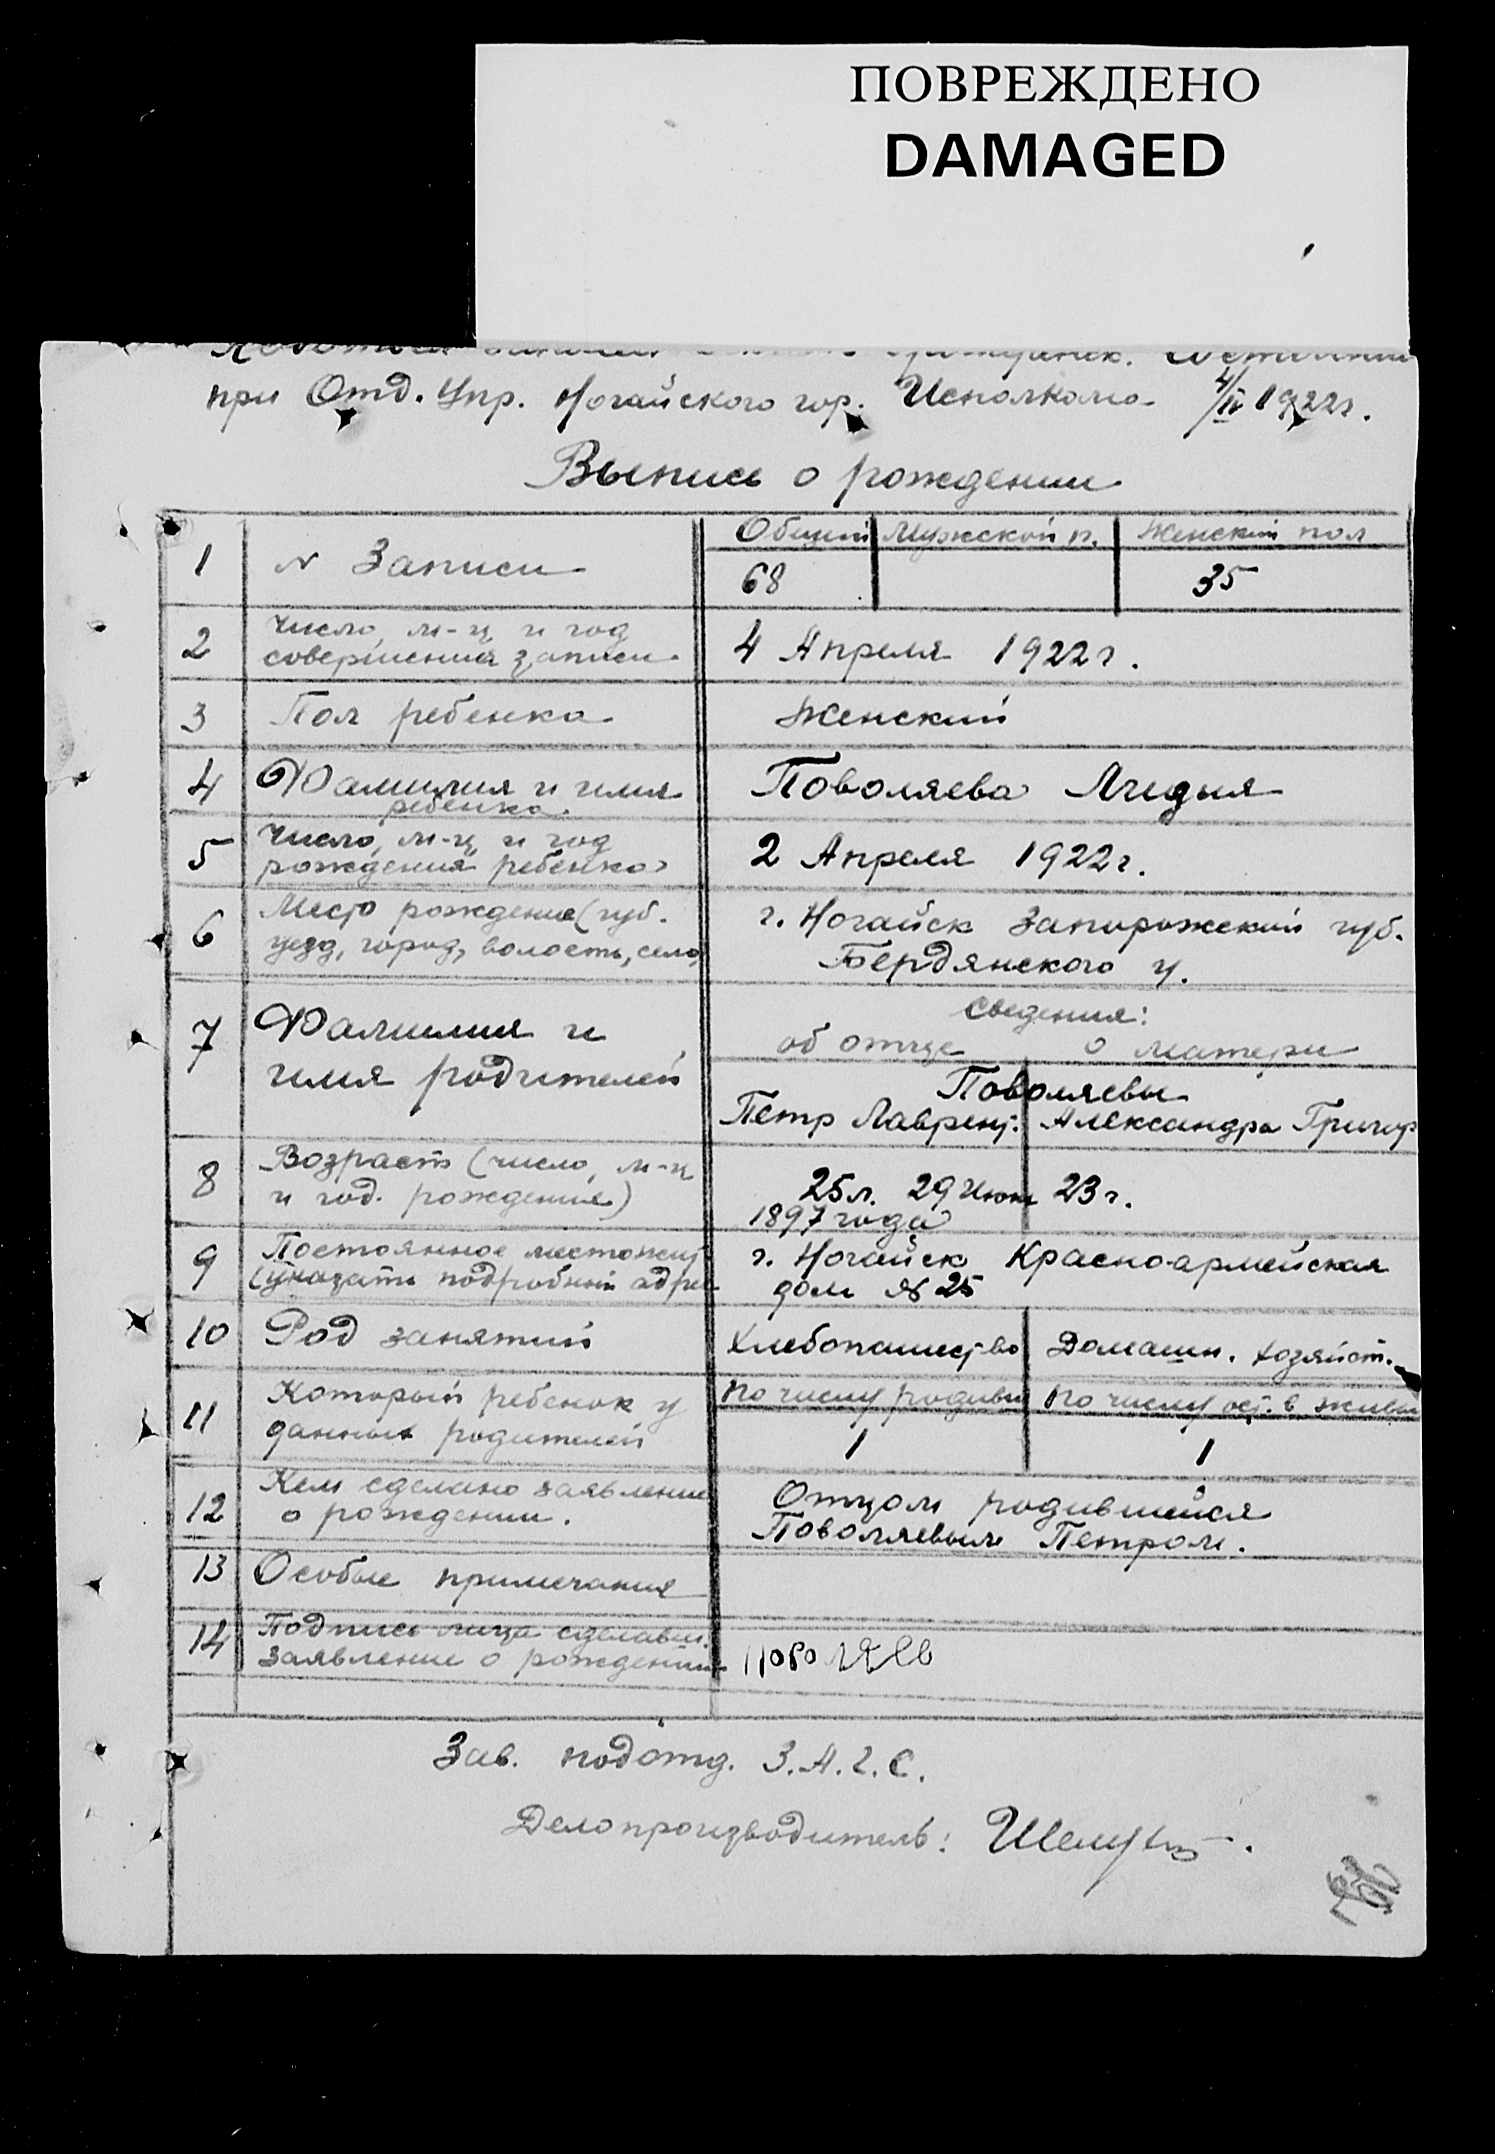 ПОВРЕЖДЕНО
DAMAGED
при Отд. Упр. Ногайского гор. Исполкома 4/IV 1922г.
Выпись о рождении
1 № Записи Общий Мужской п. Женский пол
68 35
2 Число, м-ц и год
совершения записи 4 Апреля 1922г.
3 Пол ребенка Женский
4 Фамилия и имя
ребенка Поволяева Лидия
5 Число, м-ц и год
рождения ребенка 2 Апреля 1922г.
6 Место рождения (губ.
уезд, город, волость, село) г. Ногайск Запорожской губ.
Бердянского у.
7 Фамилия и
имя родителей
сведения:
об отце о матери
Поволяевы
Петр Лаврент. Александра Григор
8 Возраст (число, м-ц
и год. рождения) 25л. 29 Июня 23г.
1897 года
9 Постоянное местожит
(указать подробный адрес г. Ногайск Красно-армейская
дом № 25
10 Род занятий Хлебопашество Домашн. хозяйст.
11 Который ребенок у
данных родителей По числу родивш По числу ост. в живых
1 1
12 Кем сделано заявление
о рождении. Отцом родившейся
Поволяевым Петром.
13 Особые примечания
14 Подпись лица сделавш.
заявление о рождении Поволяев
Зав. подотд. З.А.Г.С.
Делопроизводитель: